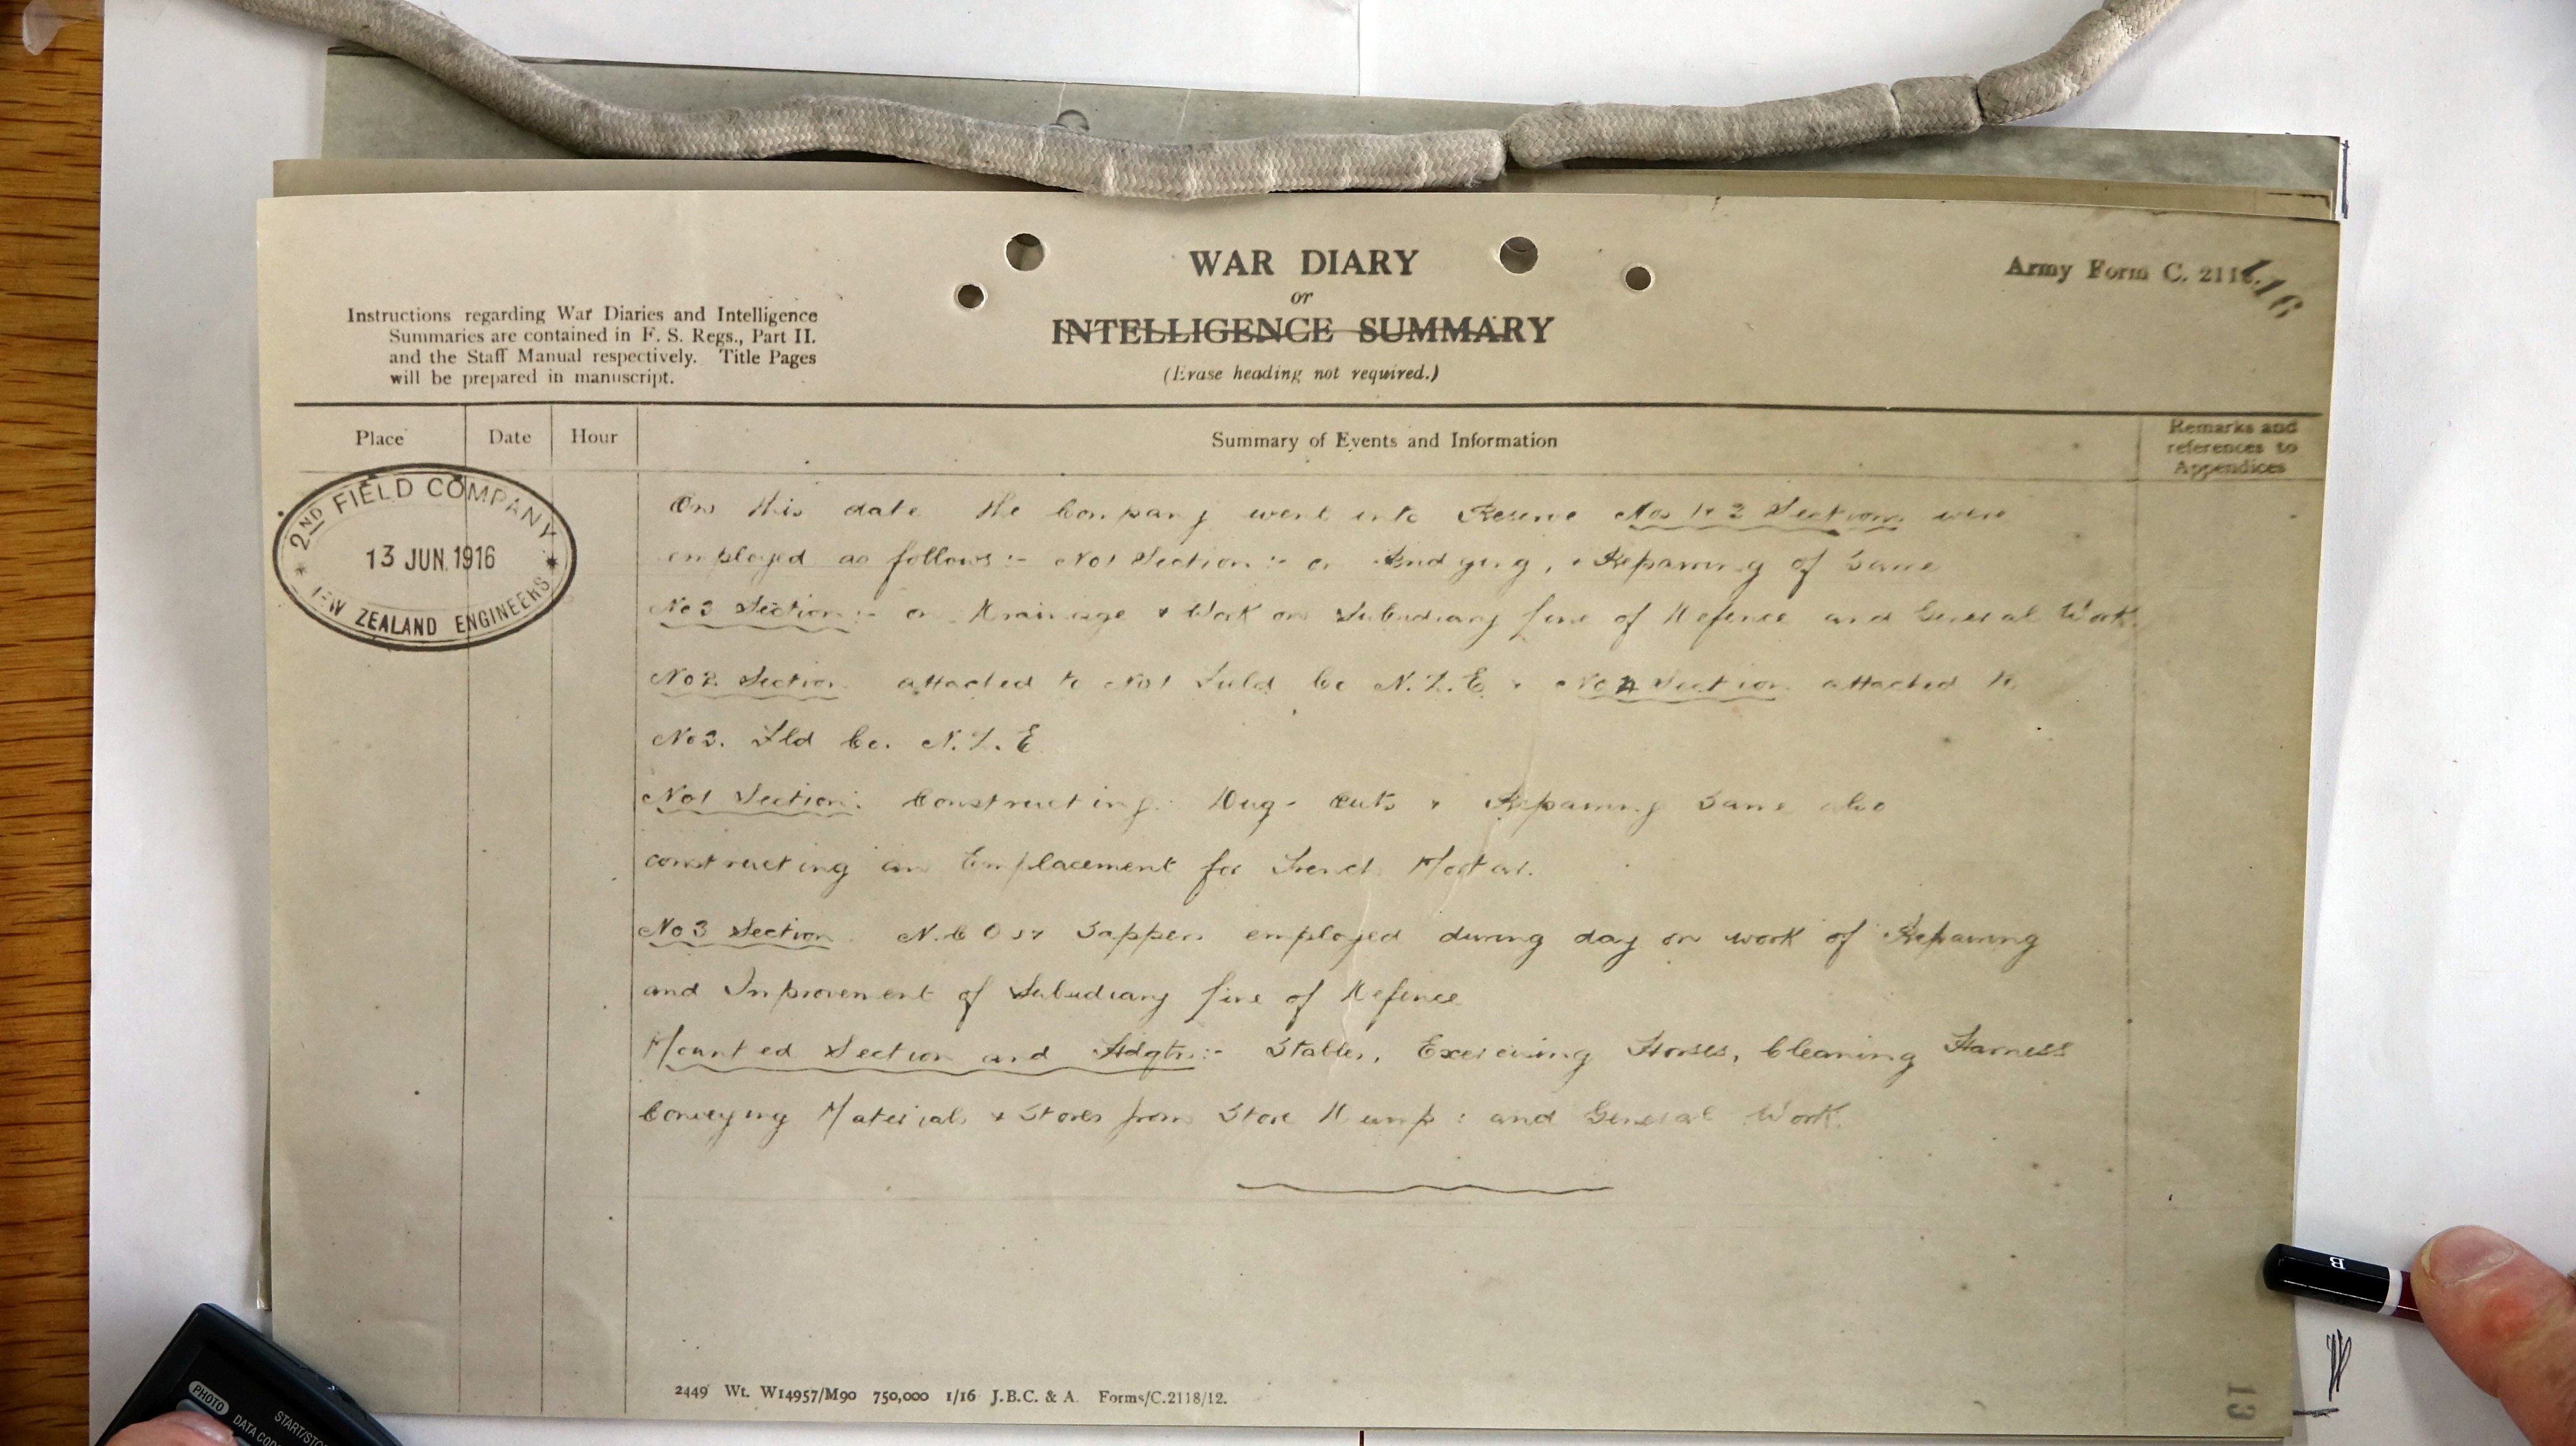 WAR DIARY
or
INTELLIGENCE SUMMARY
(Erase heading not required.)
Army Form C. 2118.
116
Instructions regarding War Diaries and Intelligence
Summaries are contained in F. S. Regs., Part II.
and the Staff Manual respectively. Title Pages
will be prepared in manuscript.
Place Date Hour Summary of Events and Information Remarks and references to Appendices
2ND FIELD COMPANY
13 JUN. 1916
NEW ZEALAND ENGINEERS
On this date the Company went into Reserve Nos 1 & 3 Sections were
employed as follows :- No 1 Section :- on , & Repairing of Same
No 3 Section :- on Drainage & Work on Subsidiary Line of Defence and General Work.
No 2 Section attached to No 1 Field Co N.Z.E & No 4 Section attached to
No 3. Fld Co. N.Z.E
No 1 Section: Constructing Dug-Outs & Repairing Same also
constructing an Emplacement for Trench Mortar.
No 3 Section. N.C.Os & Sappers employed during day on work of Repairing
and Improvement of Subsidiary Line of Defence
Mounted Section and Hdqtrs :- Stables, Exercising Horses, Cleaning Harness
Conveying Materials & Stores from Store Dump : and General Work.
2449 Wt. W14957/M90 750,000 1/16 J.B.C. & A. Forms/C.2118/12.
13
B
PHOTO
DATA CODE
START/STO